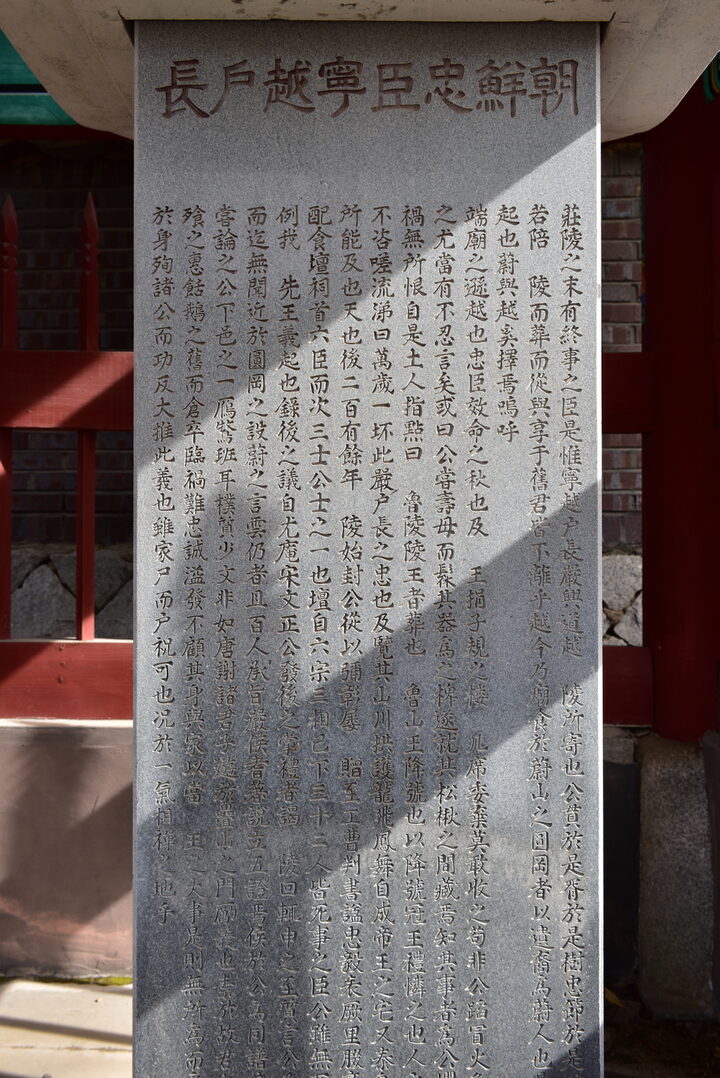 朝鮮忠臣寧越戶長
莊陵之末有終事之臣是惟寧越戶長嚴興道越 陵所寄也公賁於是胥於是樹忠節於是
若陪 陵而葬而從與享于舊君皆不離乎越今乃廟食於蔚山之圓岡者以遺裔爲蔚人也
起也蔚與越奚擇焉嗚呼
端廟之遜越也忠臣效命之秋也及 王捐子規之樓 几席委棄莫敢收之苟非公蹈冒火
之尤當有不忍言矣或曰公嘗壽母而髹其器爲之椑遂託其松楸之間藏焉知其事者爲公
禍無所恨自是土人指點曰 魯陵陵王者葬也 魯山王降號也以降號冠王禮憐之也人
不咨嗟流涕曰萬歲一坏此嚴戶長之忠也及覽其山川拱護龍飛鳳舞自成帝王之宅又
所能及也天也後二百有餘年 陵始封公從以彌彰屢 贈至工曹判書諡忠毅表厥里
配食壇祠首六臣而次三士公士之一也壇自六宗三相已下三十二人皆死事之臣公雖無
例我 先王義起也錄後之議自尤庵宋文正公發後之掌禮者謁 陵回輒申之至
而迄無聞近於圓岡之設蔚之言雲仍者且百人承旨 者著說立五 焉侯於公爲同
嘗論之公下邑之一鴈鶩班耳樸質少文非如唐謝諸君子 之門 義也 於故君
飱之惠䬣鵝之舊而倉卒臨禍難忠誠溢發不顧其身與家以當 王之大事是則無所爲而
於身殉諸公而功反大推此義也雖家尸而戶祝可也況於一氣相 之地乎